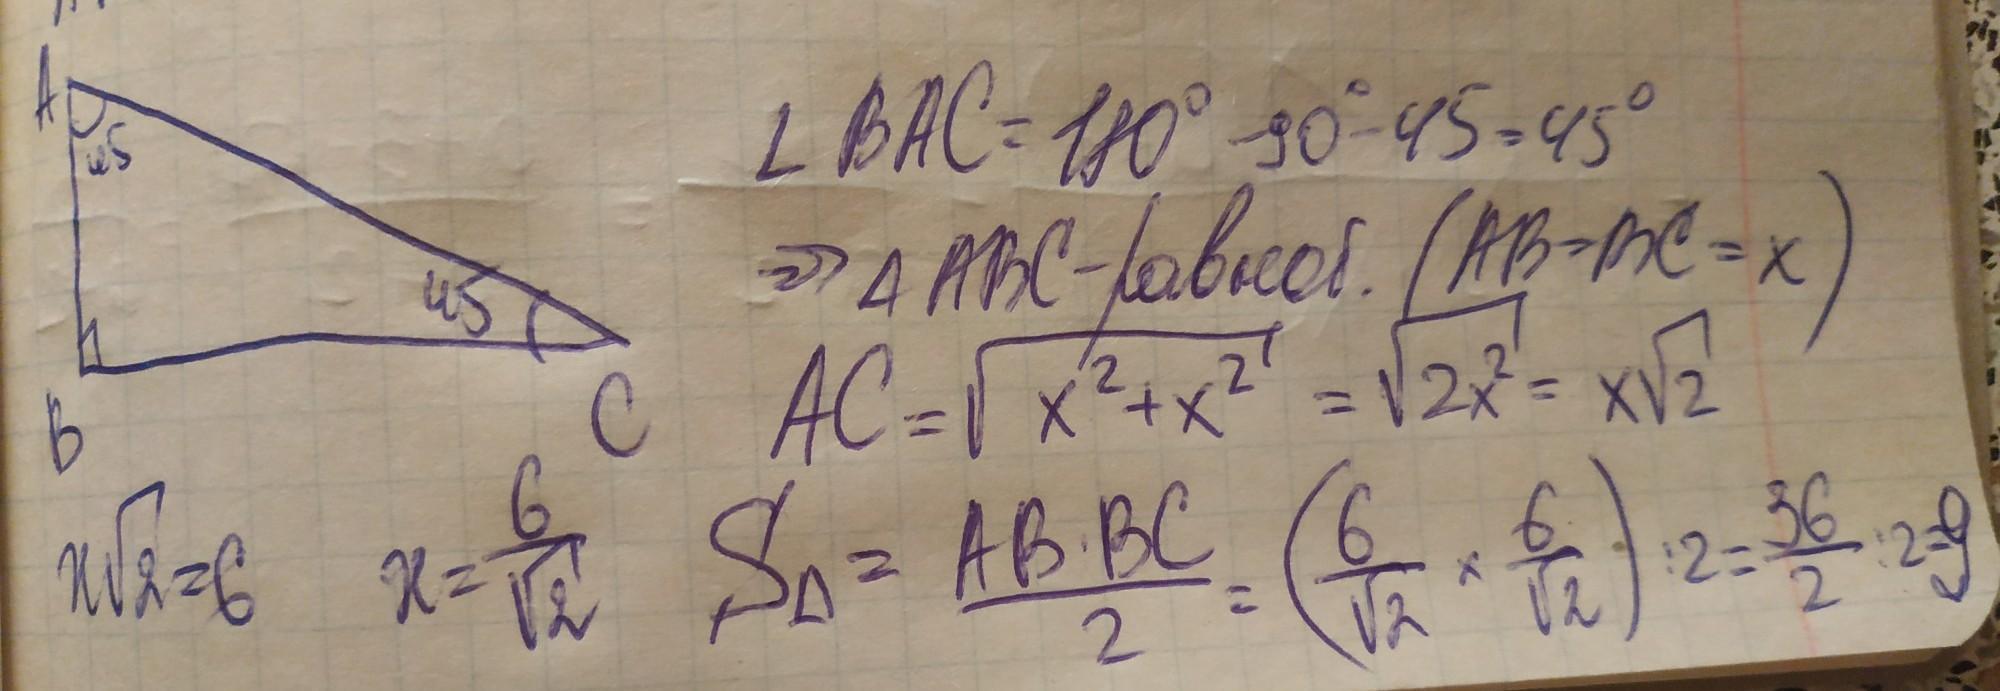 A
45
45
B
C
∠ BAC = 180° - 90° - 45 = 45°
=> Δ ABC - равноб. (AB = BC = x)
AC = √(x² + x²) = √(2x²) = x√2
x√2 = 6 x = 6/√2 S△ = AB · BC / 2 = (6/√2 × 6/√2) : 2 = 36/2 : 2 = 9